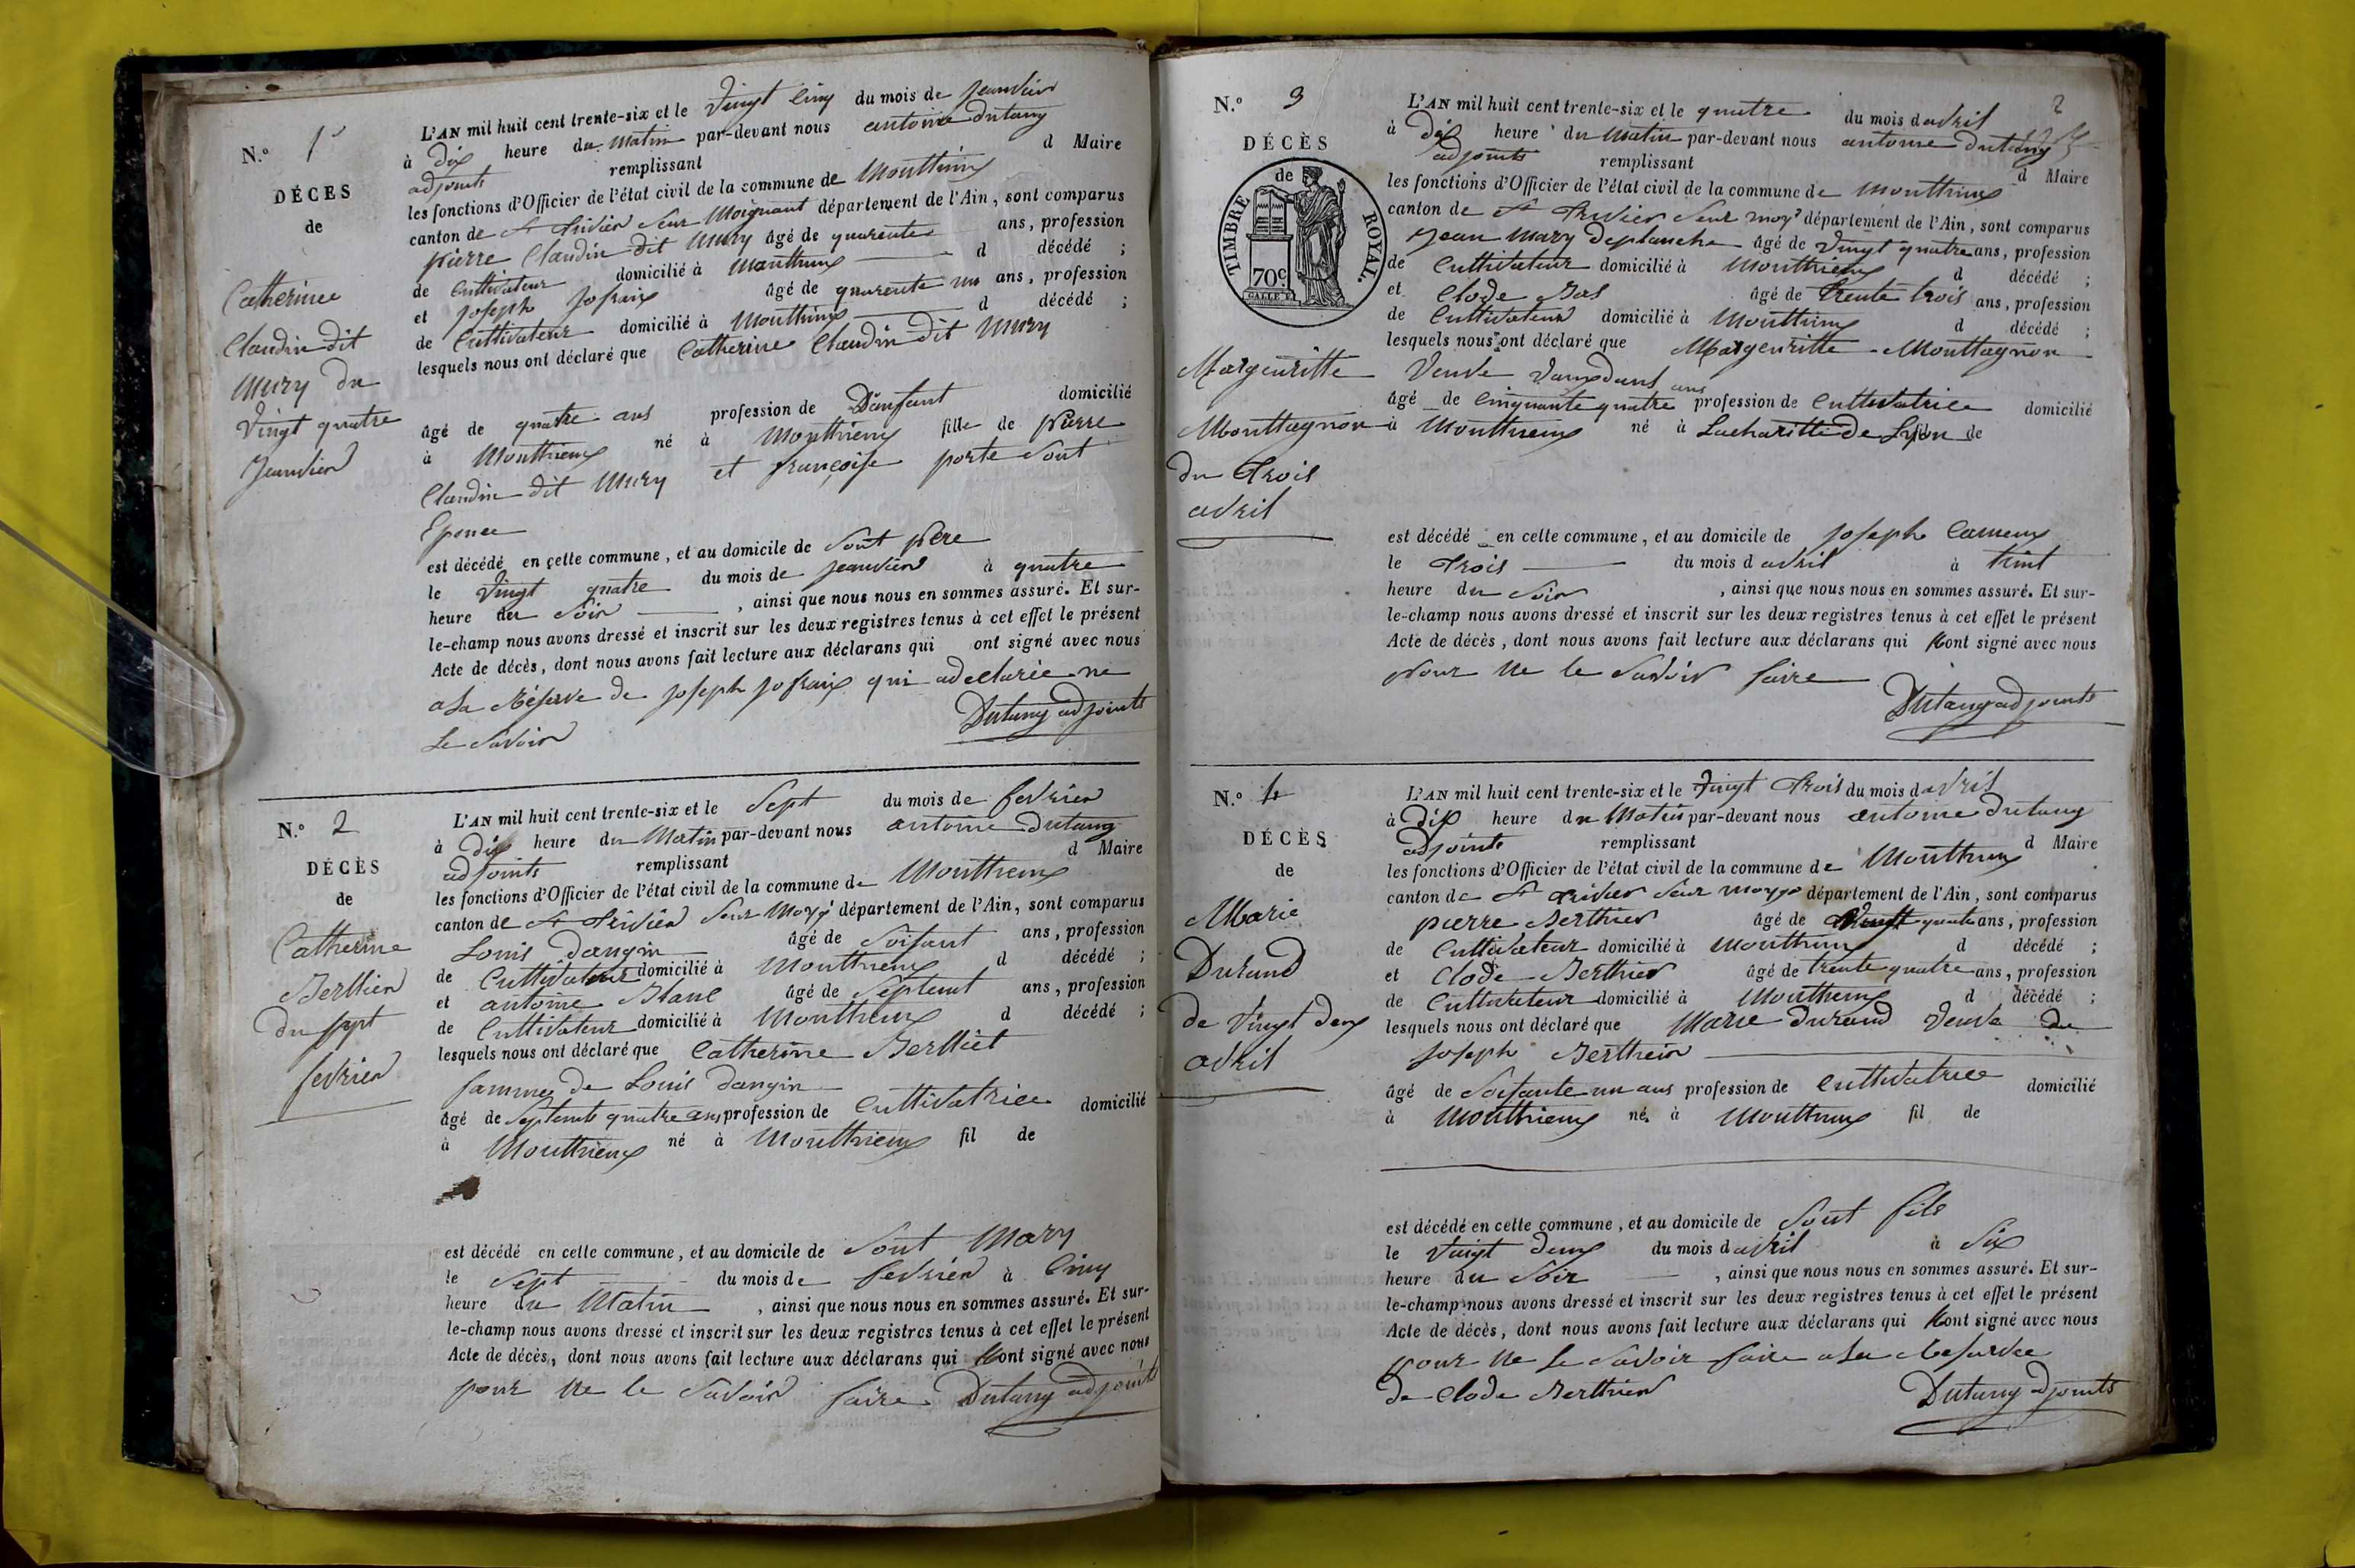 N.º 1
DÉCES
de
Catherinee
Claudin dit
Mury du
Vingt quatre
Jeanvier
L'AN mil huit cent trente-six et le Vingt Cinq du mois de Jeanvier
à dix heure du Matin par-devant nous antoine dutang
adjoints remplissant d Maire
les fonctions d'Officier de l'état civil de la commune de Monttrieux
canton de St Trivier Seur Moignant département de l'Ain, sont comparus
pierre Claudin dit Mury âgé de quarente ans, profession
de Cultivateur domicilié à Montthieux d décédé ;
et joseph âgé de quarente un ans, profession
de Cultivateur domicilié à Montthieux d décédé ;
lesquels nous ont déclaré que Catherine Claudin dit Mury
âgé de quatre ans profession de Danfant domicilié
à Montthieux né à Montthieux fille de Pierre
Claudin dit Mury et françoise porte Sont
Epouce
est décédé en cette commune, et au domicile de Sont Pere
le Vingt quatre du mois de jeanvier à quatre
heure du Soir , ainsi que nous nous en sommes assuré. Et sur-
le-champ nous avons dressé et inscrit sur les deux registres tenus à cet effet le présent
Acte de décès, dont nous avons fait lecture aux déclarans qui ont signé avec nous
a La Réserve de joseph qui a declarée ne
Le Savoir Dutang adjoints
N.º 2
DÉCÈS
de
Catherine
Berllier
du sept
fevrier
L'AN mil huit cent trente-six et le Sept du mois de fevrier
à dix heure du Matin par-devant nous antoine dutang
adjoints remplissant d Maire
les fonctions d'Officier de l'état civil de la commune de Montthieux
canton de St Trivier Seur Moy département de l'Ain, sont comparus
Louis Dangin âgé de Soisant ans, profession
de Cultivateur domicilié à Montthieux d décédé ;
et antoine Blanc âgé de Septent ans, profession
de Cultivateur domicilié à Montthieux d décédé ;
lesquels nous ont déclaré que Catherine Berlliet
famme de Louis Dangin
âgé de Septente quatre ans profession de Cultivatrice domicilié
à Montthieux né à Montthieux fil de
est décédé en cette commune, et au domicile de Sont Mary
le Sept du mois de fevrier à Cinq
heure du Matin , ainsi que nous nous en sommes assuré. Et sur-
le-champ nous avons dressé et inscrit sur les deux registres tenus à cet effet le présent
Acte de décès, dont nous avons fait lecture aux déclarans qui Nont signé avec nous
pour ne le Savoir faire Dutang adjoints
2
N.º 3
DÉCÈS
de
TIMBRE ROYAL.
70c
Margeuritte
Monttagnon
du Trois
avril
L'AN mil huit cent trente-six et le quatre du mois d avril
à dix heure du Matin par-devant nous antoine Dutang
adjoints remplissant d Maire
les fonctions d'Officier de l'état civil de la commune de Montthieux
canton de St Trivier Seur moy département de l'Ain, sont comparus
Jean Mary Deplanche âgé de Vingt quatre ans, profession
de Cultivateur domicilié à Montthieux d décédé ;
et Clode Bas âgé de trente trois ans, profession
de Cultivateur domicilié à Montthieux d décédé ;
lesquels nous ont déclaré que Margeuritte Monttagnon
Veuve
âgé de Cinquante quatre ans profession de Cultivatrice domicilié
à Montthieux né à Lacharitte de Lyon de
est décédé en cette commune, et au domicile de joseph
le Trois du mois d avril à
heure du Soir , ainsi que nous nous en sommes assuré. Et sur-
le-champ nous avons dressé et inscrit sur les deux registres tenus à cet effet le présent
Acte de décès, dont nous avons fait lecture aux déclarans qui Nont signé avec nous
pour ne le Savoir faire
Dutang adjoints
N.º 4
DÉCÈS
de
Marie
Durand
de Vingt deux
avril
L'AN mil huit cent trente-six et le Vingt Trois du mois d avril
à dix heure du Matin par-devant nous antoine Dutang
adjoints remplissant d Maire
les fonctions d'Officier de l'état civil de la commune de Montthieux
canton de St Trivier Seur moy département de l'Ain, sont comparus
pierre Berthier âgé de Vingt quatre ans, profession
de Cultivateur domicilié à Montthieux d décédé ;
et Clode Berthier âgé de trente quatre ans, profession
de Cultivateur domicilié à Montthieux d décédé ;
lesquels nous ont déclaré que Marie durand Veuve de
joseph Bertheir
âgé de Soisante un ans profession de Cultivatrice domicilié
à Montthieux né à Montthieux fil de
est décédé en cette commune, et au domicile de Sont fils
le Vingt deux du mois d avril à Six
heure du Soir , ainsi que nous nous en sommes assuré. Et sur-
le-champ nous avons dressé et inscrit sur les deux registres tenus à cet effet le présent
Acte de décès, dont nous avons fait lecture aux déclarans qui Nont signé avec nous
pour ne le Savoir faire a La Resarvee
de Clode Berthier Dutang adjoints